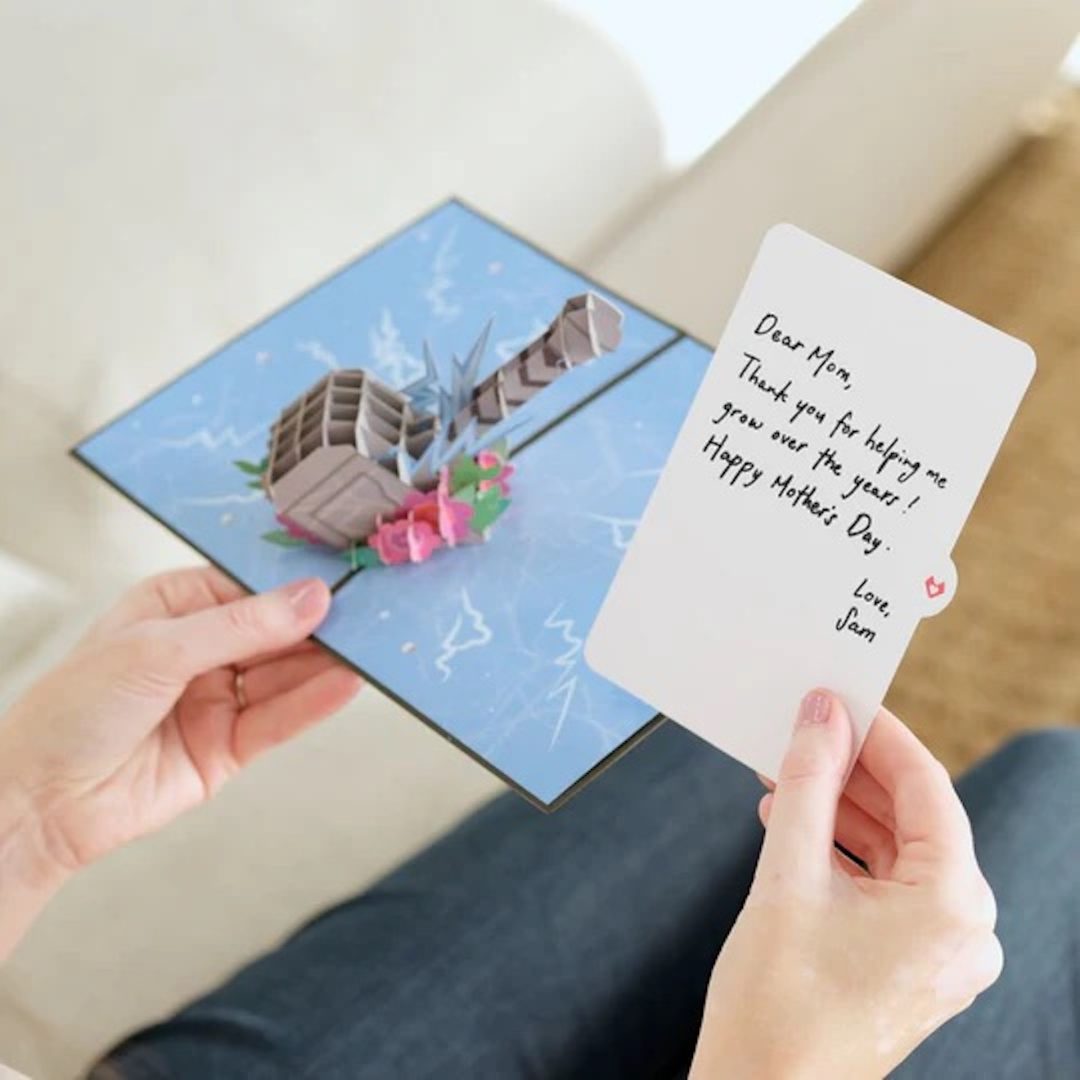 Dear Mom,
Thank you for helping me
grow over the years!
Happy Mother's Day.
Love,
Sam